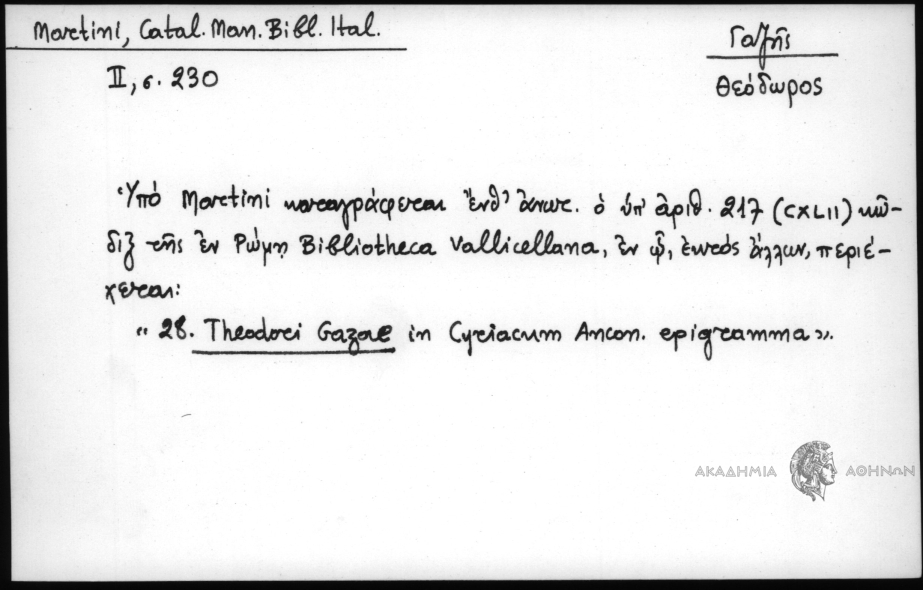 Martini, Catal. Man. Bibl. Ital.
II, σ. 230
Γαζῆς
Θεόδωρος
Ὑπό Martini καταγράφεται ἔνθ' ἀνωτ. ὁ ὑπ' ἀριθ. 217 (CXLII) κῶ-
διξ τῆς ἐν Ρώμῃ Bibliotheca Vallicellana, ἐν ᾧ, ἐκτός ἄλλων, περιέ-
χεται:
« 28. Theodori Gazae in Cyriacum Ancon. epigramma».
ΑΚΑΔΗΜΙΑ ΑΘΗΝΩΝ